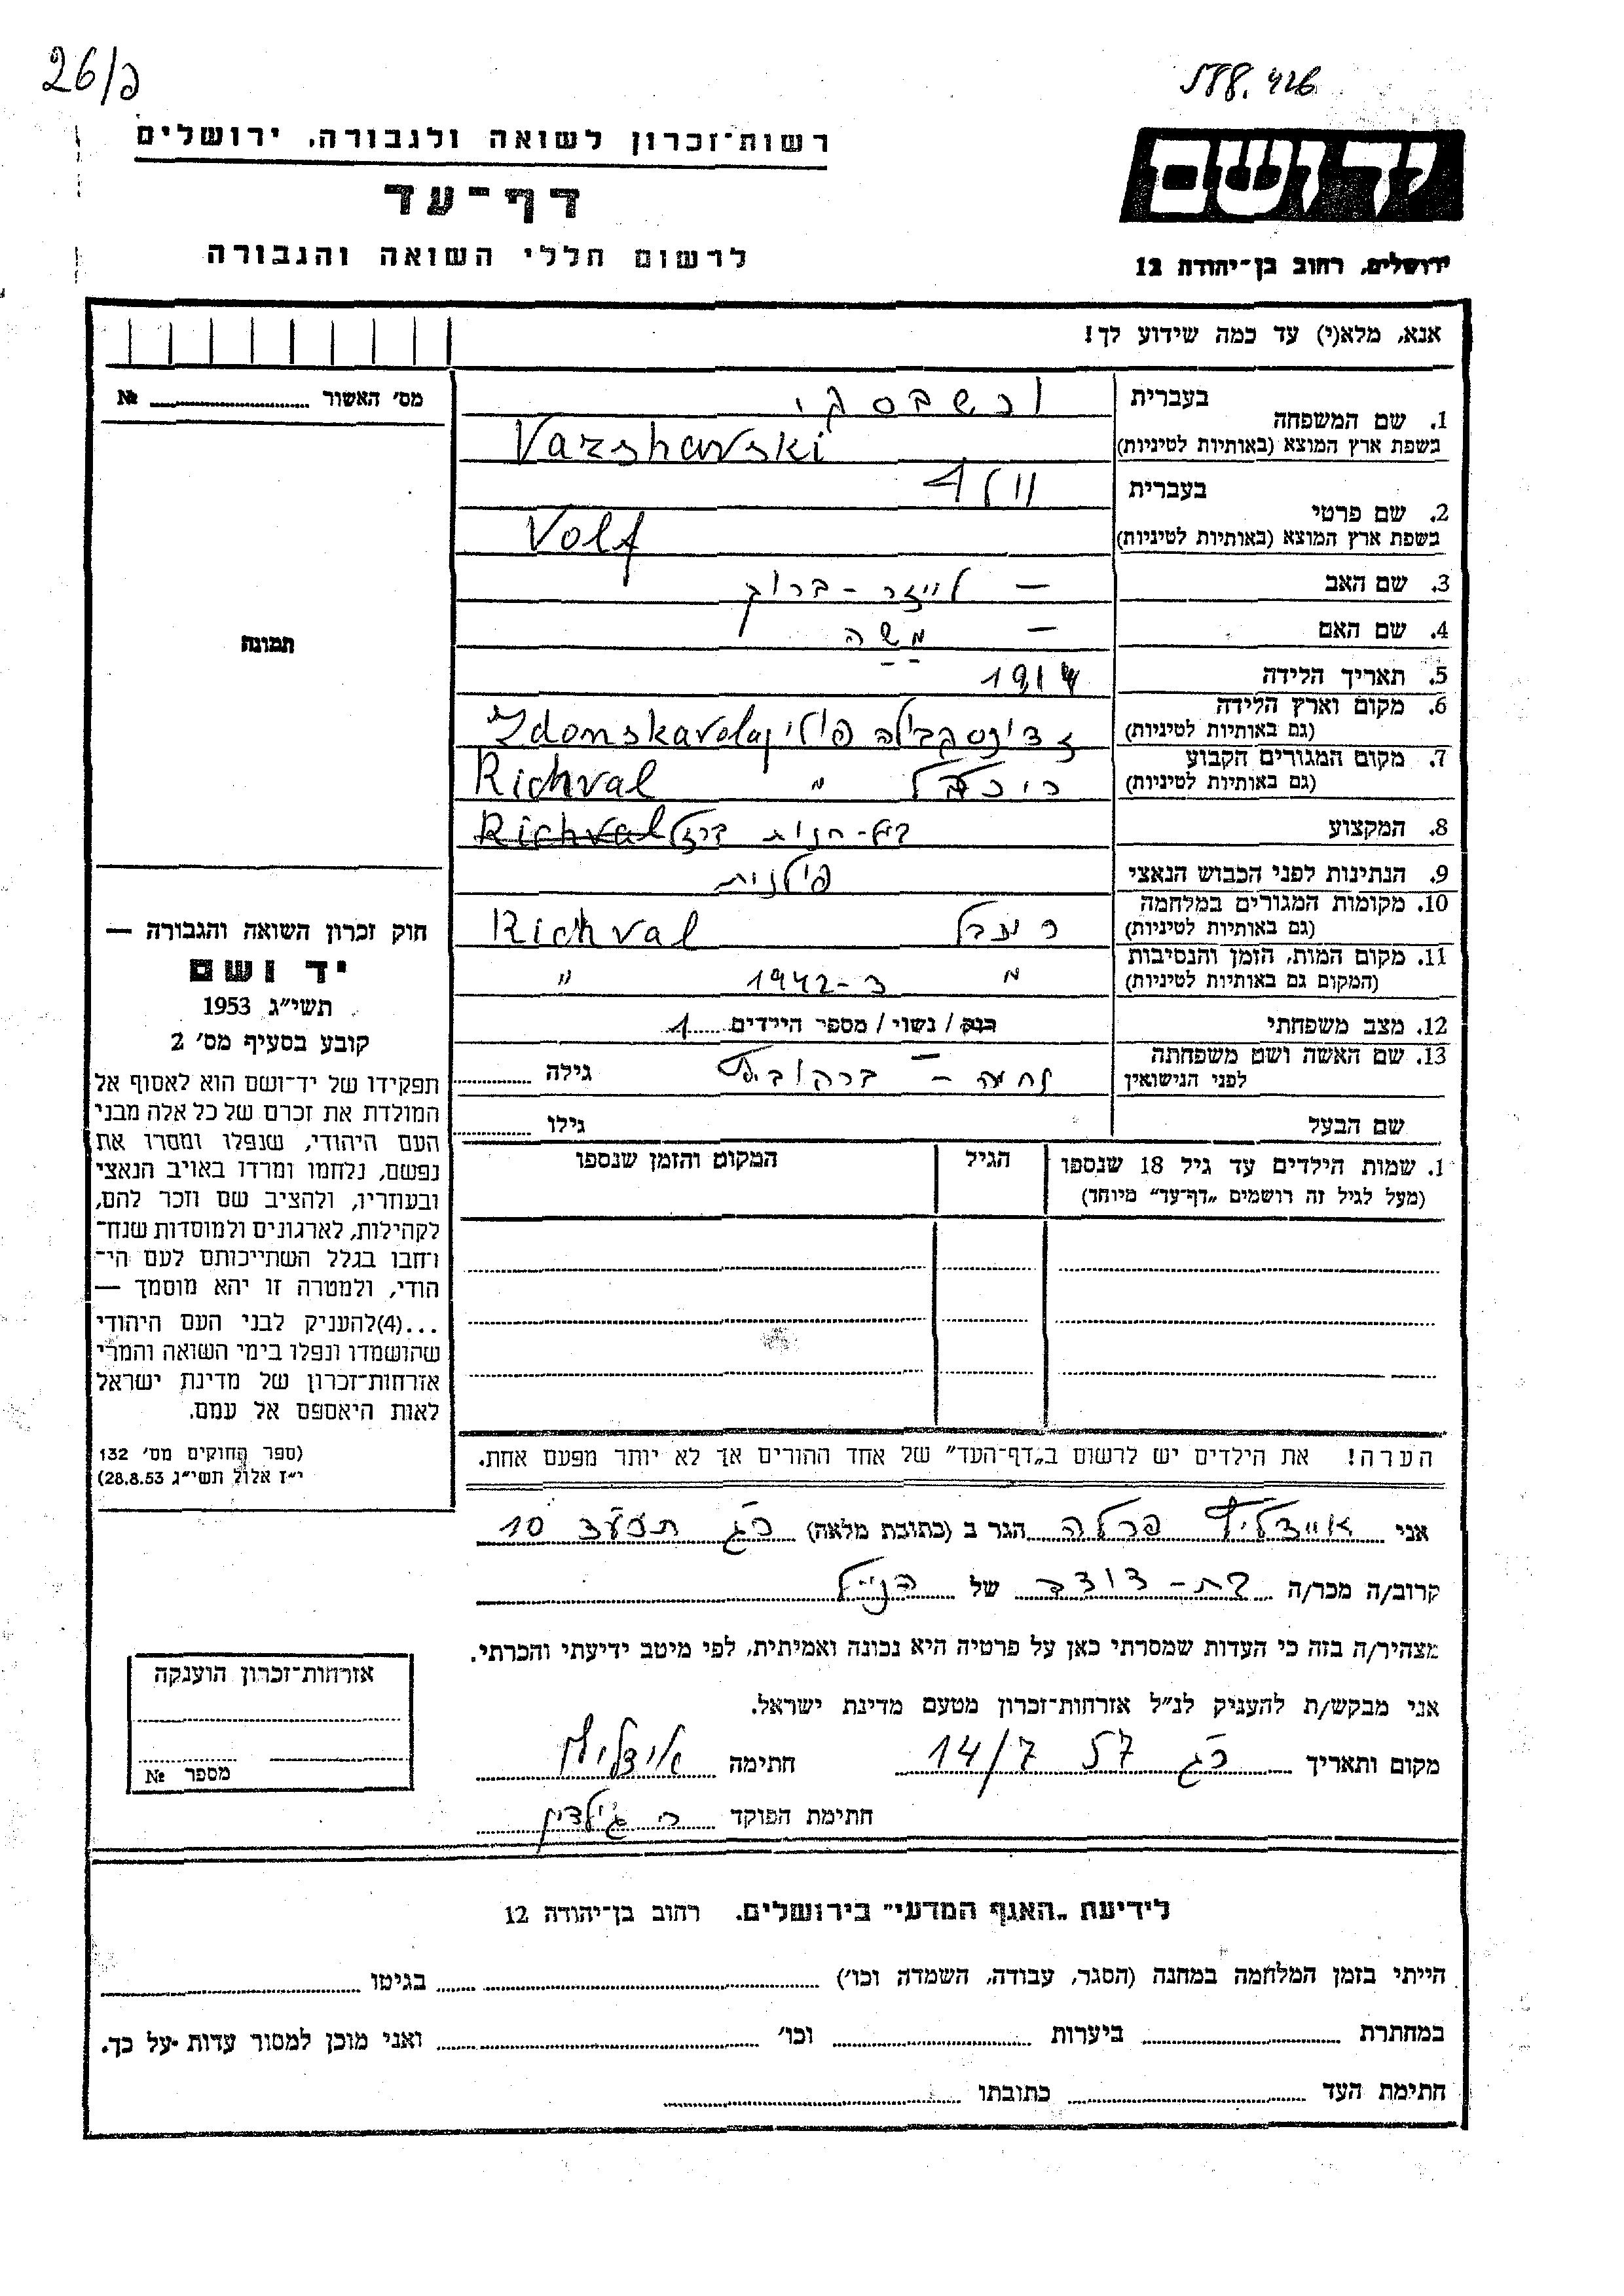 26/ם
588.426
רשות־זכרון לשואה ולגבורה, ירושלים
דף־עד
לרשום חללי השואה והגבורה
יד ושם
ירושלים, רחוב בן־יהודה 12
אנא, מלא(י) עד כמה שידוע לך!
מס׳ האשור № 
תמונה
1. שם המשפחה בעברית ורשבסקי
בשפת ארץ המוצא (באותיות לטיניות) Varshavski
2. שם פרטי בעברית וולף
בשפת ארץ המוצא (באותיות לטיניות) Volf
3. שם האב — לייזר - ברוך
4. שם האם — משה
5. תאריך הלידה 1914
6. מקום וארץ הלידה
(גם באותיות לטיניות) Zdonskavola
7. מקום המגורים הקבוע
(גם באותיות לטיניות) Richval
8. המקצוע Richval
9. הנתינות לפני הכבוש הנאצי פולנית
10. מקומות המגורים במלחמה
(גם באותיות לטיניות) Richval
11. מקום המות, הזמן והנסיבות
(המקום גם באותיות לטיניות) " 1942-3 "
12. מצב משפחתי רווק / נשוי / מספר הילדים 1
13. שם האשה ושם משפחתה
לפני הנישואין נחמה - ברקוביץ גילה
שם הבעל גילו
1. שמות הילדים עד גיל 18 שנספו הגיל המקום והזמן שנספו
(מעל לגיל זה רושמים „דף־עד״ מיוחד)
הערה! את הילדים יש לרשום ב„דף־העד״ של אחד ההורים אך לא יותר מפעם אחת.
חוק זכרון השואה והגבורה —
יד ושם
תשי״ג 1953
קובע בסעיף מס׳ 2
תפקידו של יד־ושם הוא לאסוף אל
המולדת את זכרם של כל אלה מבני
העם היהודי, שנפלו ומסרו את
נפשם, נלחמו ומרדו באויב הנאצי
ובעוזריו, ולהציב שם וזכר להם,
לקהילות, לארגונים ולמוסדות שנח־
רחבו בגלל השתייכותם לעם הי־
הודי, ולמטרה זו יהא מוסמך —
...(4)להעניק לבני העם היהודי
שהושמדו ונפלו בימי השואה והמרי
אזרחות־זכרון של מדינת ישראל
לאות היאספם אל עמם.
(ספר החוקים מס׳ 132
י״ז אלול תשי״ג 28.8.53)
אני פרלה הגר ב (כתובת מלאה) רג 10
קרוב/ה מכר/ה בת - דודה של הנ״ל
מצהיר/ה בזה כי העדות שמסרתי כאן על פרטיה היא נכונה ואמיתית, לפי מיטב ידיעתי והכרתי.
אני מבקש/ת להעניק לנ״ל אזרחות־זכרון מטעם מדינת ישראל.
מקום ותאריך רג 14/7 57 חתימה
חתימת הפוקד
אזרחות־זכרון הוענקה
מספר №
לידיעת „האגף המדעי״ בירושלים. רחוב בן־יהודה 12
הייתי בזמן המלחמה במחנה (הסגר, עבודה, השמדה וכו׳) בגיטו
במחתרת ביערות וכו׳ ואני מוכן למסור עדות על כך.
חתימת העד כתובתו